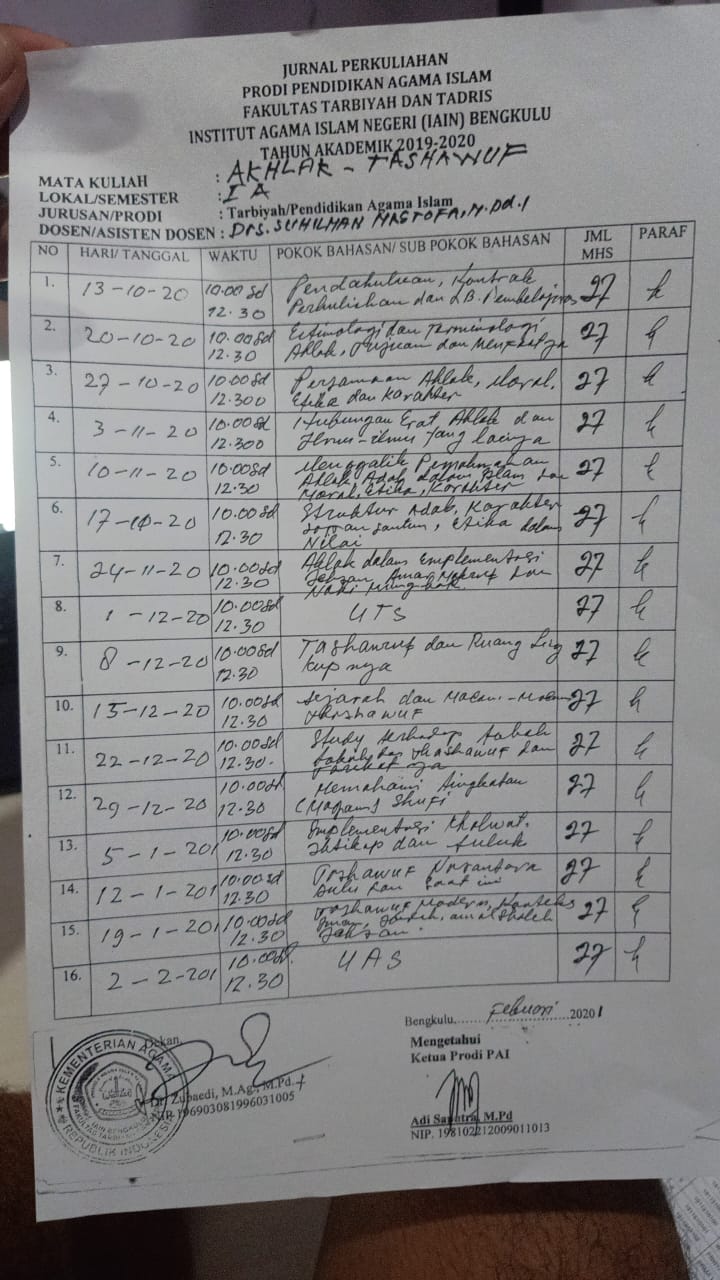 JURNAL PERKULIAHAN
PRODI PENDIDIKAN AGAMA ISLAM
FAKULTAS TARBIYAH DAN TADRIS
INSTITUT AGAMA ISLAM NEGERI (IAIN) BENGKULU
TAHUN AKADEMIK 2019-2020
MATA KULIAH : AKHLAK - TASHAWUF
LOKAL/SEMESTER : I A
JURUSAN/PRODI : Tarbiyah/Pendidikan Agama Islam
DOSEN/ASISTEN DOSEN : Drs. SUHILMAN MASTOFA, M.Pd.I
NO HARI/ TANGGAL WAKTU POKOK BAHASAN/ SUB POKOK BAHASAN JML MHS PARAF
1. 13-10-20 10.00 sd Pendahuluan, Kontrak 27
12.30 Perkuliahan dan
2. 20-10-20 10.00 sd Etimologi dan Terminologi 27
12.30 Ahlak, Tujuan dan
3. 27-10-20 10.00 sd Persamaan Ahlak, Moral, 27
12.300 Etika dan Karakter
4. 3-11-20 10.00 sd Hubungan Erat Ahlak dan 27
12.300 Ilmu-ilmu yang lainya
5. 10-11-20 10.00 sd Menggalik Pemahaman 27
12.30 Ahlak, Adab dalam Islam dan
Moral, Etika, Karakter
6. 17-10-20 10.00 sd Struktur Adab, Karakter 27
12.30 sopan santun, Etika dalam
Nilai
7. 24-11-20 10.00 sd Ahlak dalam Emplementasi 27
12.30 dengan Amar Makruf dan
Nahi Mungkar
8. 1-12-20 10.00 sd UTS 27
12.30
9. 8-12-20 10.00 sd Tashawuf dan Ruang Ling 27
12.30 kupnya
10. 15-12-20 10.00 sd Sejarah dan Macam-Macam 27
12.30 Thashawuf
11. 22-12-20 10.00 sd Study terhadap 27
12.30. Thashawuf dan
Tarikatnya
12. 29-12-20 10.00 sd Memahami Tingkatan 27
12.30 (Maqam) Shufi
13. 5-1-201 10.00 sd Implementasi Kholwat, 27
12.30 dan Suluk
14. 12-1-201 10.00 sd Tashawuf Nusantara 27
12.30 dulu dan saat ini
15. 19-1-201 10.00 sd Tashawuf Modern, 27
12.30 Iman, amal Sholeh
16. 2-2-201 10.00 sd UAS 27
12.30
Bengkulu, Februari 2021
Dekan,
Mengetahui
Ketua Prodi PAI
KEMENTERIAN AGAMA
REPUBLIK INDONESIA
Dr. Zubaedi, M.Ag., M.Pd.
NIP. 196903081996031005
Adi Saputra, M.Pd
NIP. 198102212009011013